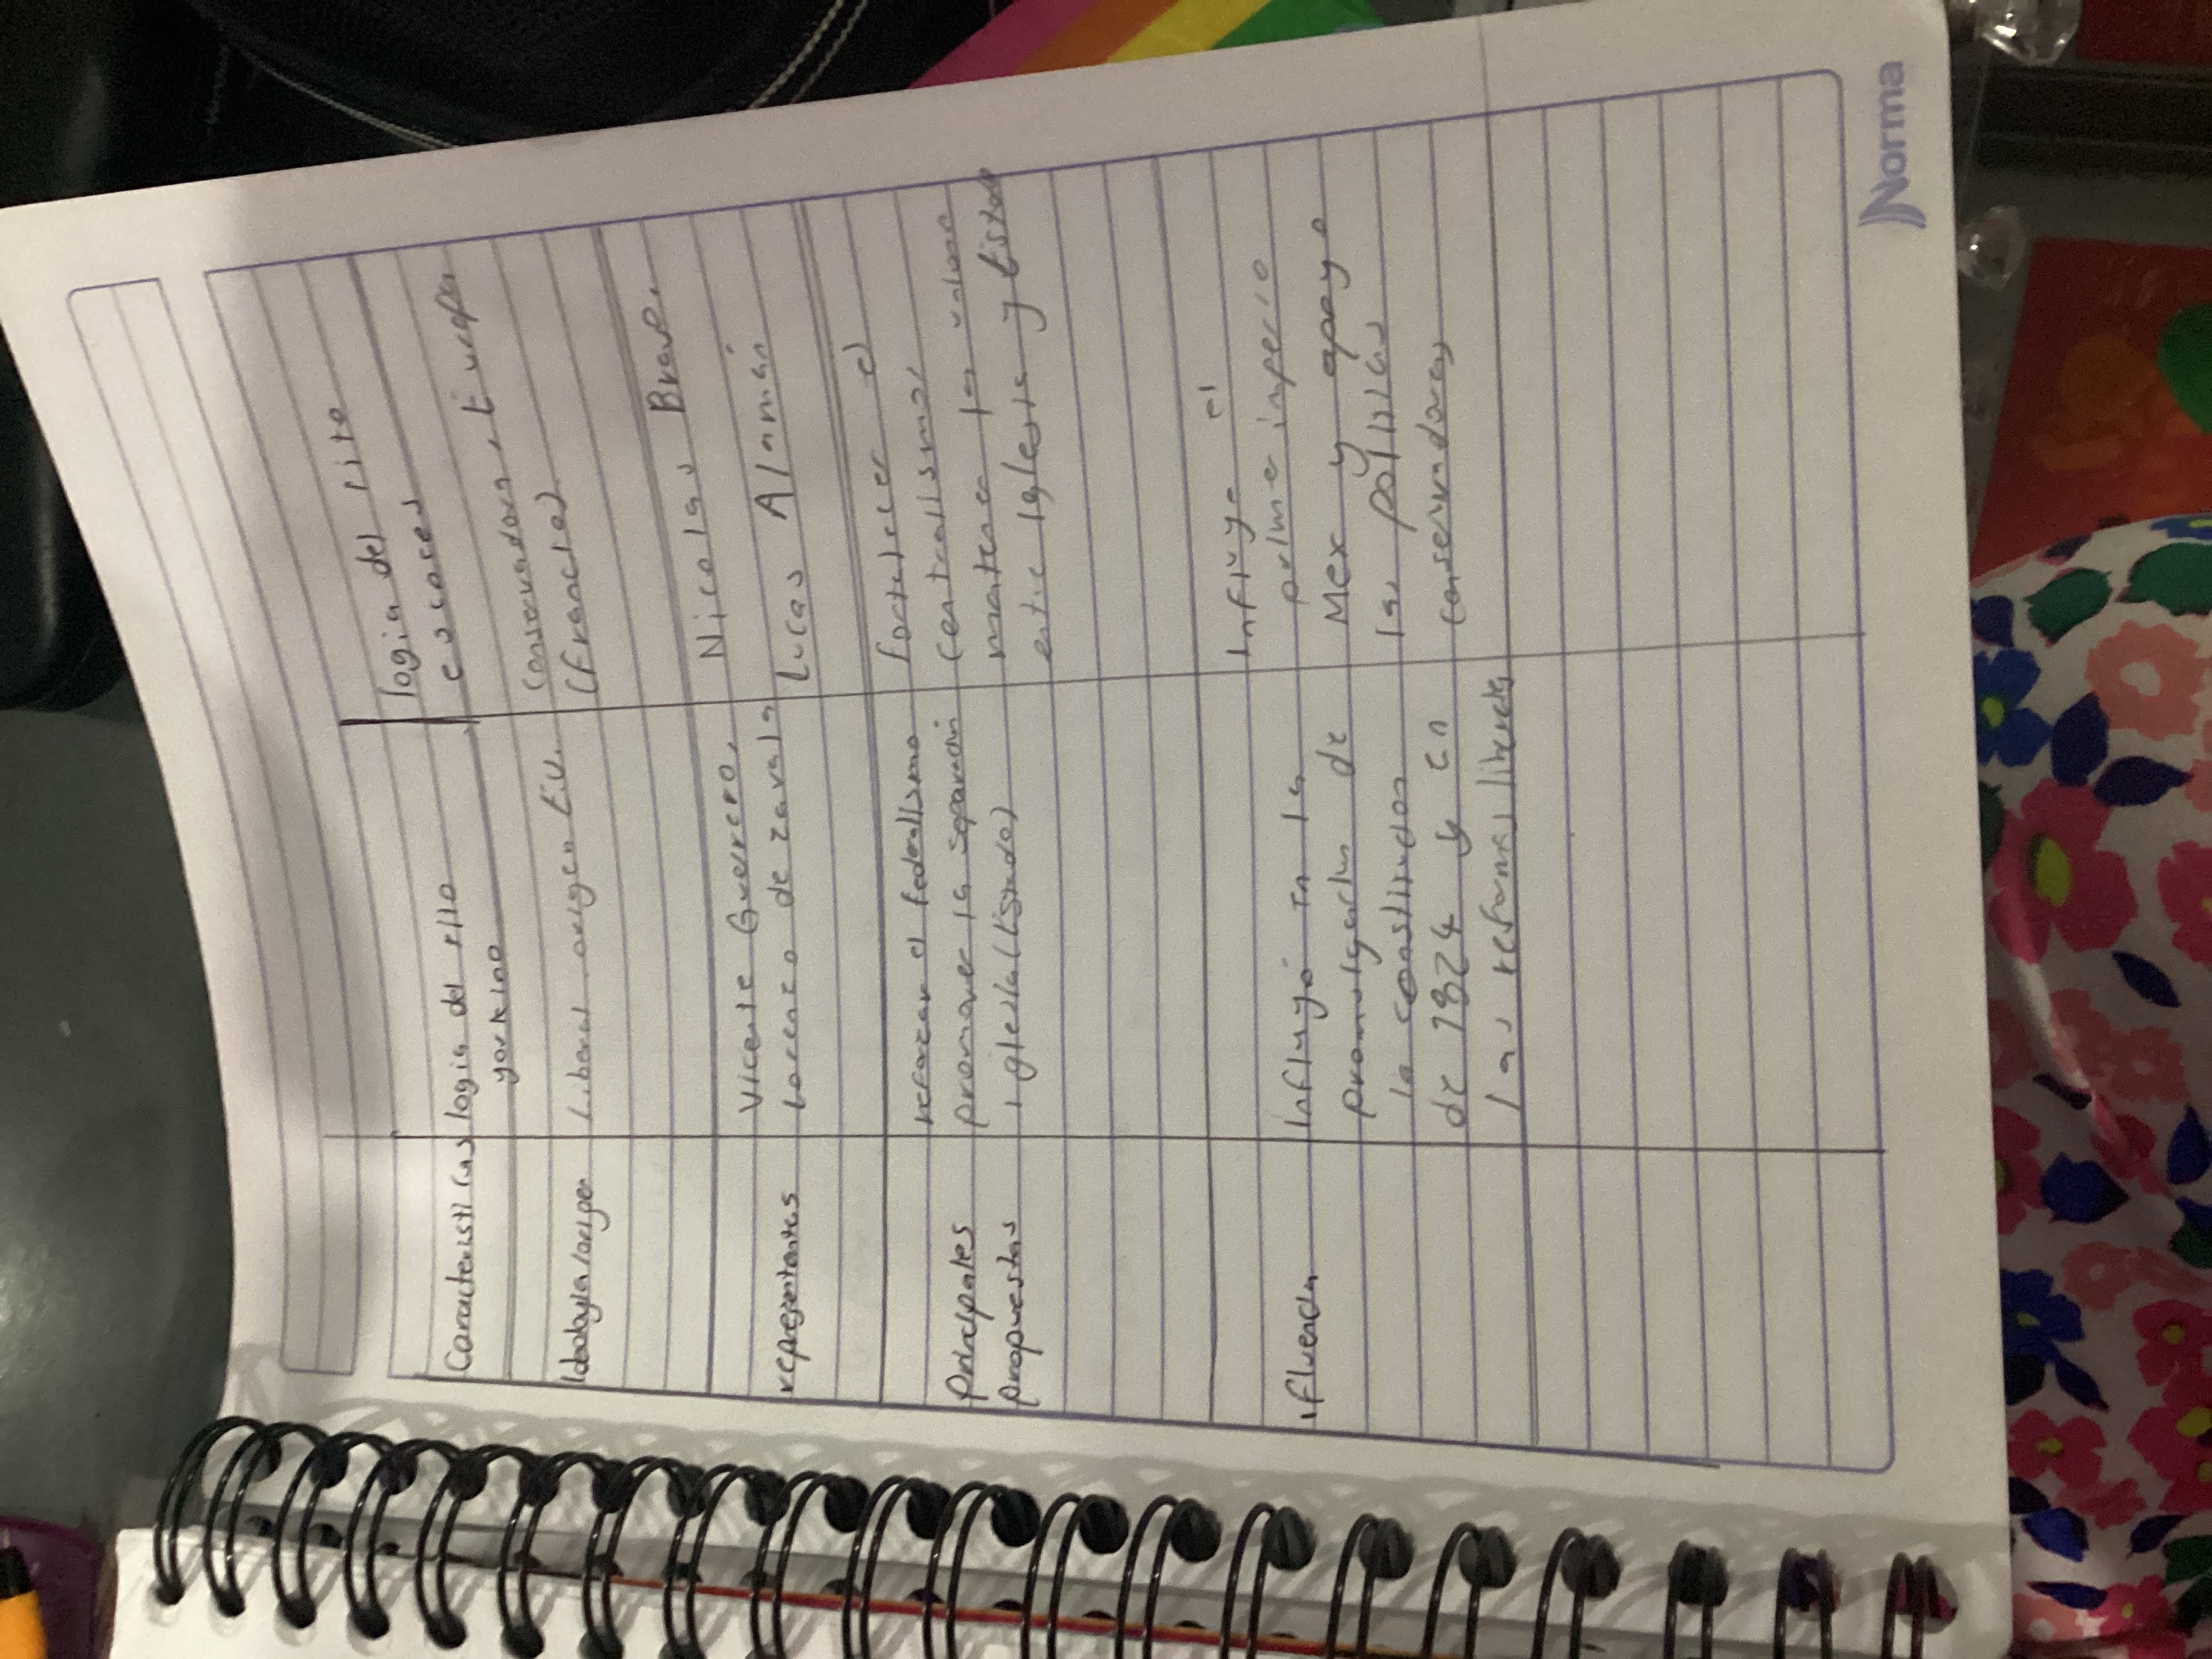 Caracteristicas
logia del rito
yorkino
logia del rito
escoces
Ideologia/origen
Liberal origen E.U.
conservadora, Europa
(francia)
representantes
Vicente Guerrero,
Lorenzo de zavala
Nicolas Bravo,
Lucas Alamán
Principales
propuestas
reforzar el federalismo
promover la separación
iglesia/(Estado)
fortelecer el
centralismo,
mantener los valores
entre iglesia y Estado
ifluencia
Influyó en la
promulgación de
la constitucion
de 1824 y en
las reformas liberales
Influye el
primer imperio
Mex y apoyo
las politicas
conservadoras
Norma